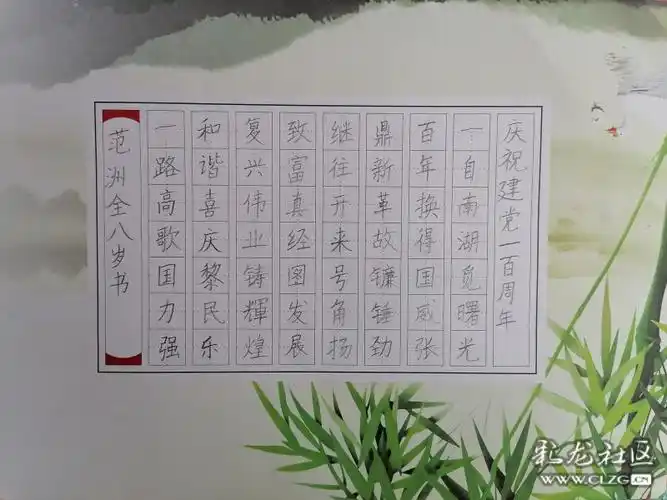 庆祝建党一百周年
一自南湖觅曙光
百年换得国威张
鼎新革故镰锤劲
继往开来号角扬
致富真经图发展
复兴伟业铸輝煌
和谐喜庆黎民乐
一路高歌国力强
范洲全八岁书
彩龙社区
WWW.CLZG.CN